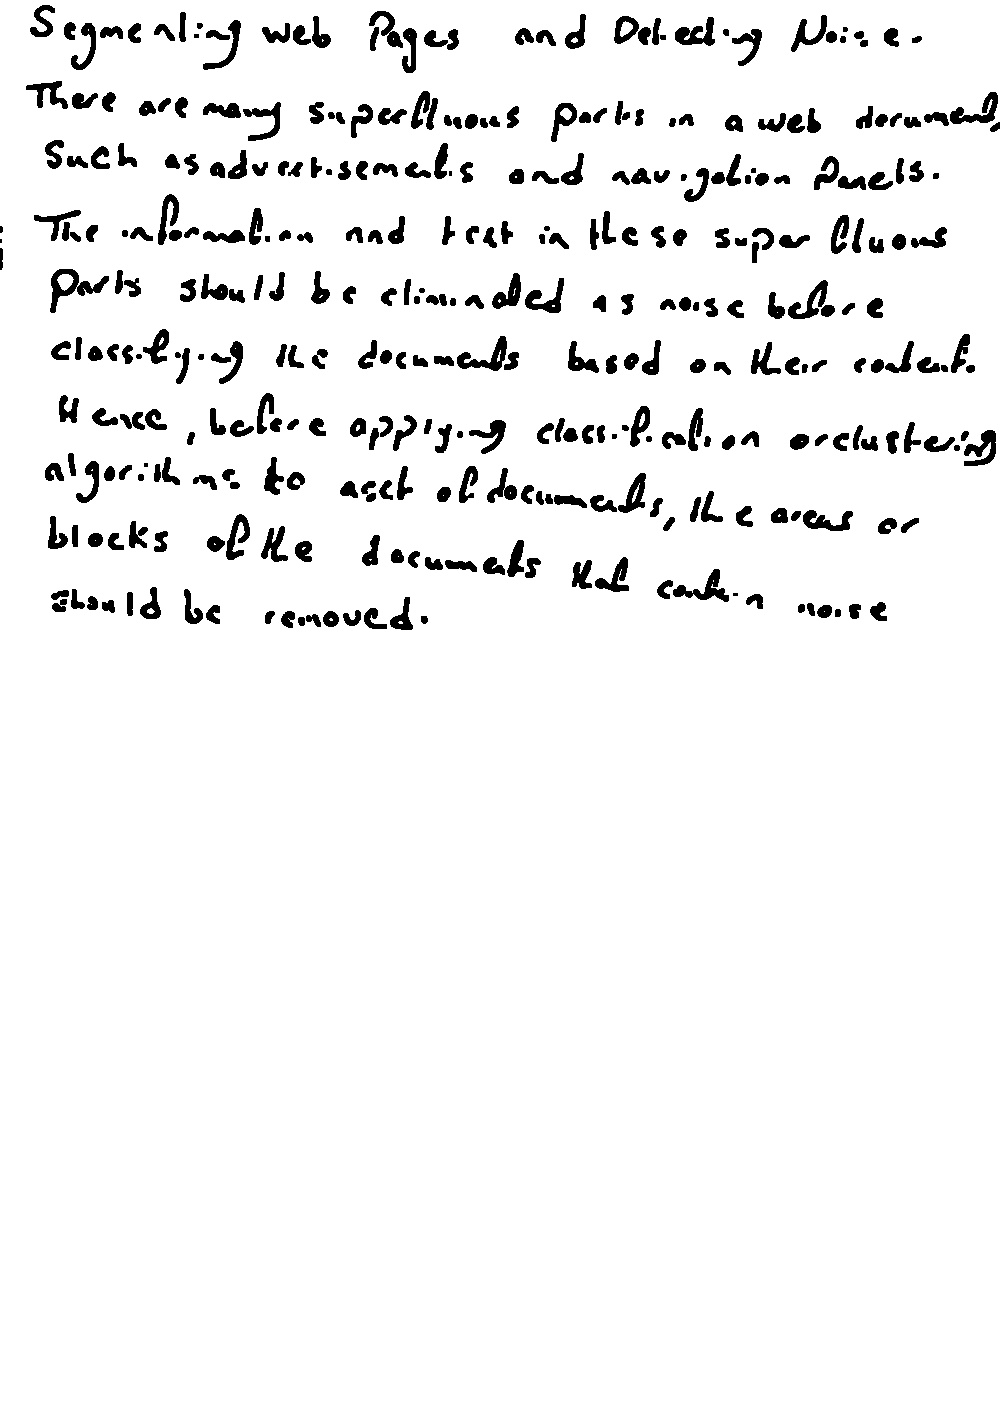 Segmenting web Pages and Detecting Noise.
There are many superfluous parts in a web document,
Such as advertisements and navigation Panels.
The information and text in these superfluous
Parts should be eliminated as noise before
classifying the documents based on their content.
Hence, before applying classification or clustering
algorithms to a set of documents, the areas or
blocks of the documents that contain noise
should be removed.